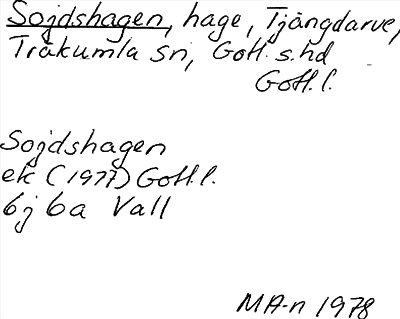 Sojdshagen, hage, Tjängdarve,
Träkumla sn, Gotl. s. hd
Gotl. l.
Sojdshagen
ek (1977) Gotl. l.
6j 6a Vall
MA-n 1978